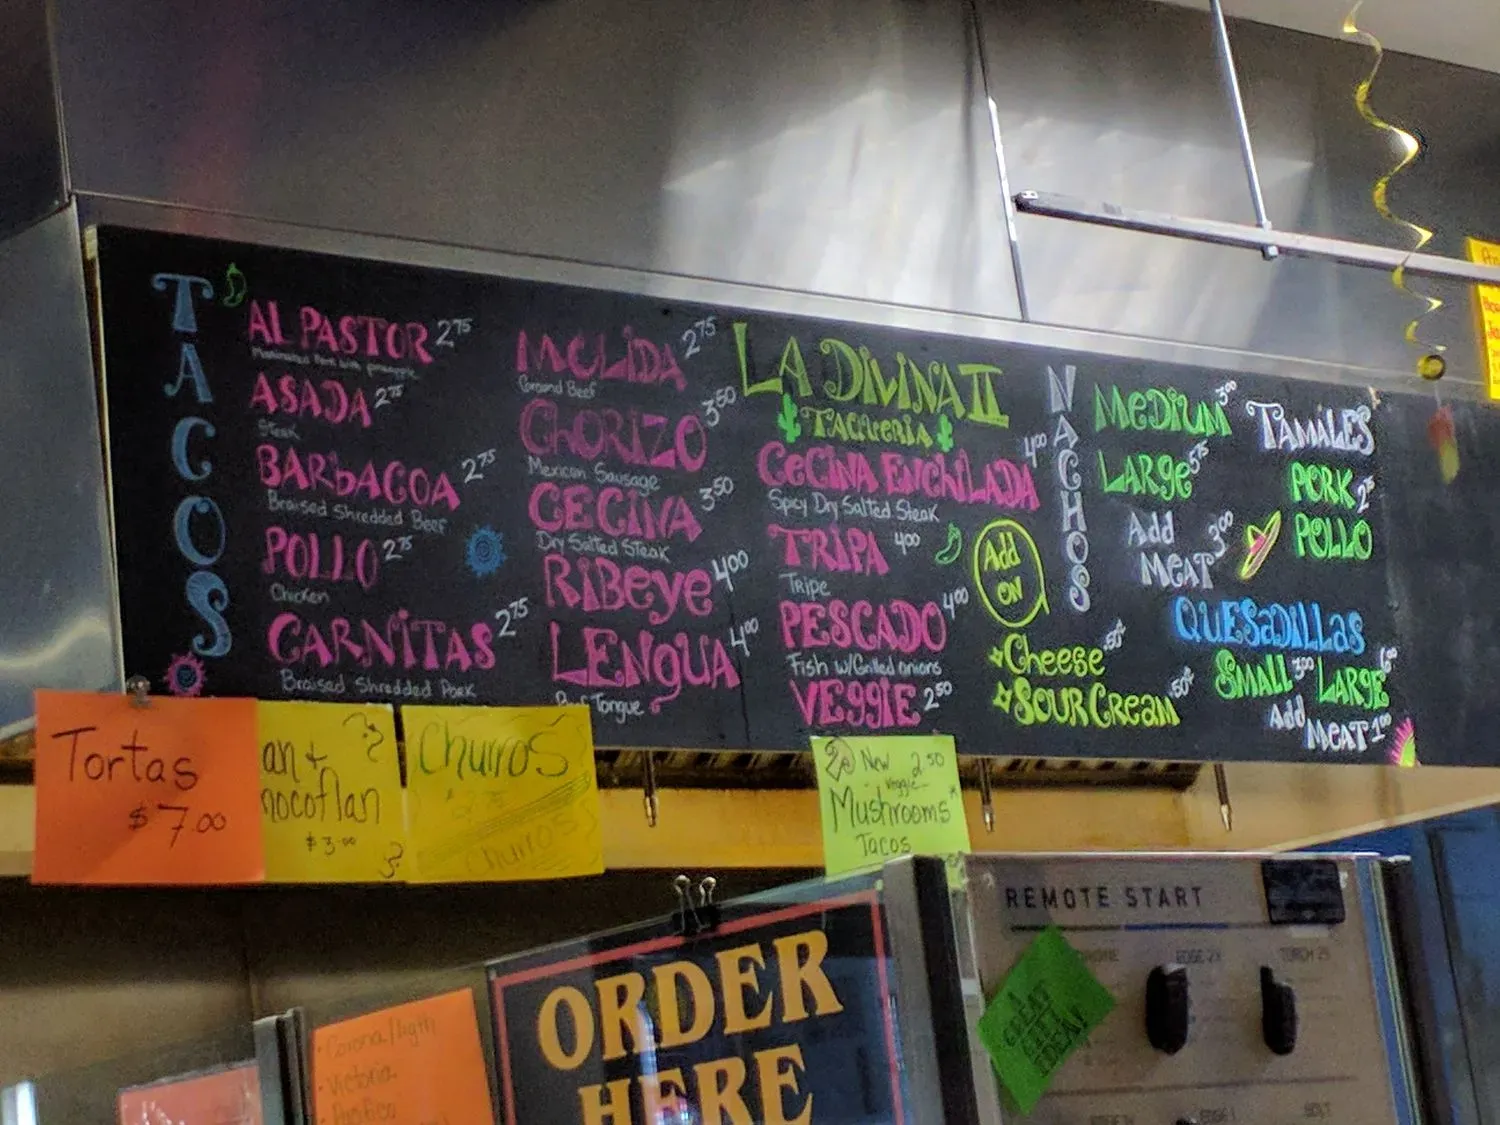 TACOS
AL PASTOR 2 75
Marinated Pork with pineapple
ASADA 2 75
Steak
BARBACOA 2 75
Braised Shredded Beef
POLLO 2 75
Chicken
CARNITAS 2 75
Braised Shredded Pork
MOLIDA 2 75
Ground Beef
CHORIZO 3 50
Mexican Sausage
CECINA 3 50
Dry Salted Steak
RIBEYE 4 00
LENGUA 4 00
Beef Tongue
LA DIVINA II
TAQUERIA
CECINA ENCHILADA 4 00
Spicy Dry Salted Steak
TRIPA 4 00
Tripe
PESCADO 4 00
Fish w/Grilled onions
VEGGIE 2 50
Add
ON
Cheese .50¢
SOUR CREAM .50¢
NACHOS
MEDIUM 3 00
LARGE 5 75
Add
MEAT 3 00
TAMALES
PORK 2 75
POLLO
QUESADILLAS
SMALL 3 00 LARGE 6 00
Add
MEAT 1 00
Tortas
$7.00
an +
hocoflan
$3.00
Churros
Churros
New 2.50
Veggie
Mushrooms
Tacos
ORDER
HERE
Corona/light
Victoria
Pacifico
REMOTE START
EDGE 2X
A
GREAT
GIFT
IDEA!